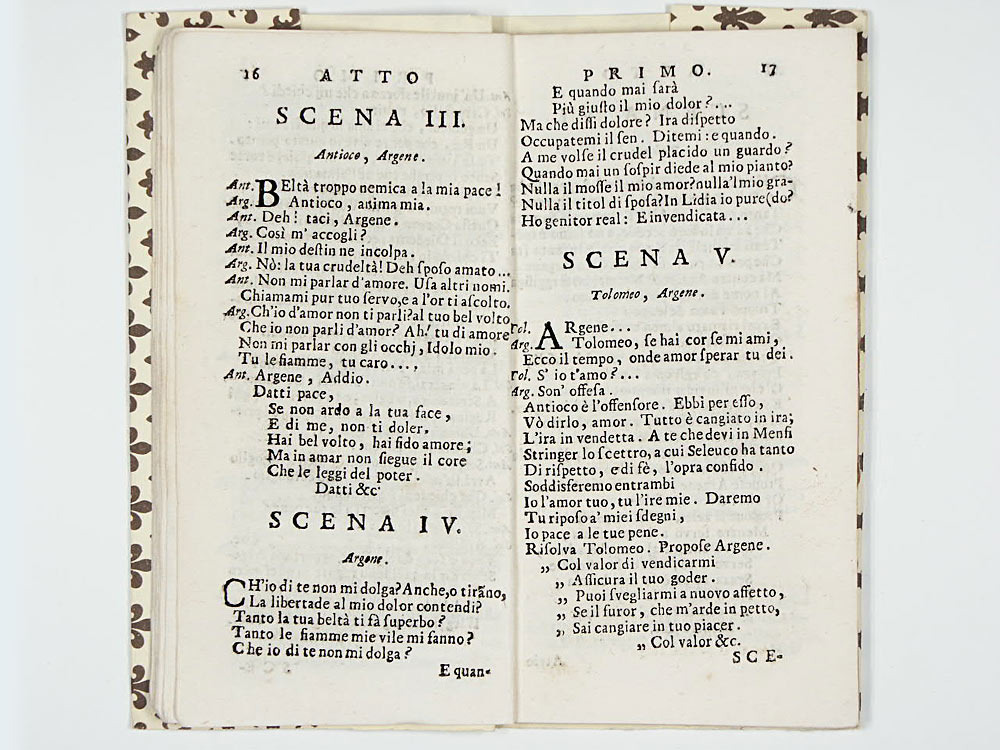 16 ATTO
SCENA III.
Antioco, Argene.
Ant. BEltà troppo nemica a la mia pace!
Arg. Antioco, anima mia.
Ant. Deh! taci, Argene.
Arg. Così m' accogli?
Ant. Il mio deſtin ne incolpa.
Arg. Nò: la tua crudeltà! Deh ſpoſo amato...
Ant. Non mi parlar d'amore. Uſa altri nomi.
Chiamami pur tuo ſervo, e a l'or ti aſcolto.
Arg. Ch'io d'amor non ti parli? al tuo bel volto
Che io non parli d'amor? Ah! tu di amore
Non mi parlar con gli occhj, Idolo mio.
Tu le fiamme, tu caro....
Ant. Argene, Addio.
Datti pace,
Se non ardo a la tua face,
E di me, non ti doler.
Hai bel volto, hai fido amore;
Ma in amar non ſiegue il core
Che le leggi del poter.
Datti &c.
SCENA IV.
Argene.
CH'io di te non mi dolga? Anche, o tirãno,
La libertade al mio dolor contendi?
Tanto la tua beltà ti fà ſuperbo?
Tanto le fiamme mie vile mi fanno?
Che io di te non mi dolga?
E quan-
PRIMO. 17
E quando mai ſarà
Più giuſto il mio dolor?...
Ma che diſſi dolore? Ira diſpetto
Occupatemi il ſen. Ditemi: e quando.
A me volſe il crudel placido un guardo?
Quando mai un ſoſpir diede al mio pianto?
Nulla il moſſe il mio amor? nulla'l mio gra-
Nulla il titol di ſpoſa? In Lidia io pure (do?
Ho genitor real: E invendicata...
SCENA V.
Tolomeo, Argene.
Tol. ARgene...
Arg. Tolomeo, ſe hai cor ſe mi ami,
Ecco il tempo, onde amor ſperar tu dei.
Tol. S' io t'amo?...
Arg. Son' offeſa.
Antioco è l'offenſore. Ebbi per eſſo,
Vò dirlo, amor. Tutto è cangiato in ira;
L'ira in vendetta. A te che devi in Menfi
Stringer lo ſcettro, a cui Seleuco ha tanto
Di riſpetto, e di fè, l'opra confido.
Soddisferemo entrambi
Io l'amor tuo, tu l'ire mie. Daremo
Tu ripoſo a' miei ſdegni,
Io pace a le tue pene.
Riſolva Tolomeo. Propoſe Argene.
„ Col valor di vendicarmi
„ Aſſicura il tuo goder.
„ Puoi ſvegliarmi a nuovo affetto,
„ Se il furor, che m'arde in petto,
„ Sai cangiare in tuo piacer.
„ Col valor &c.
SCE-